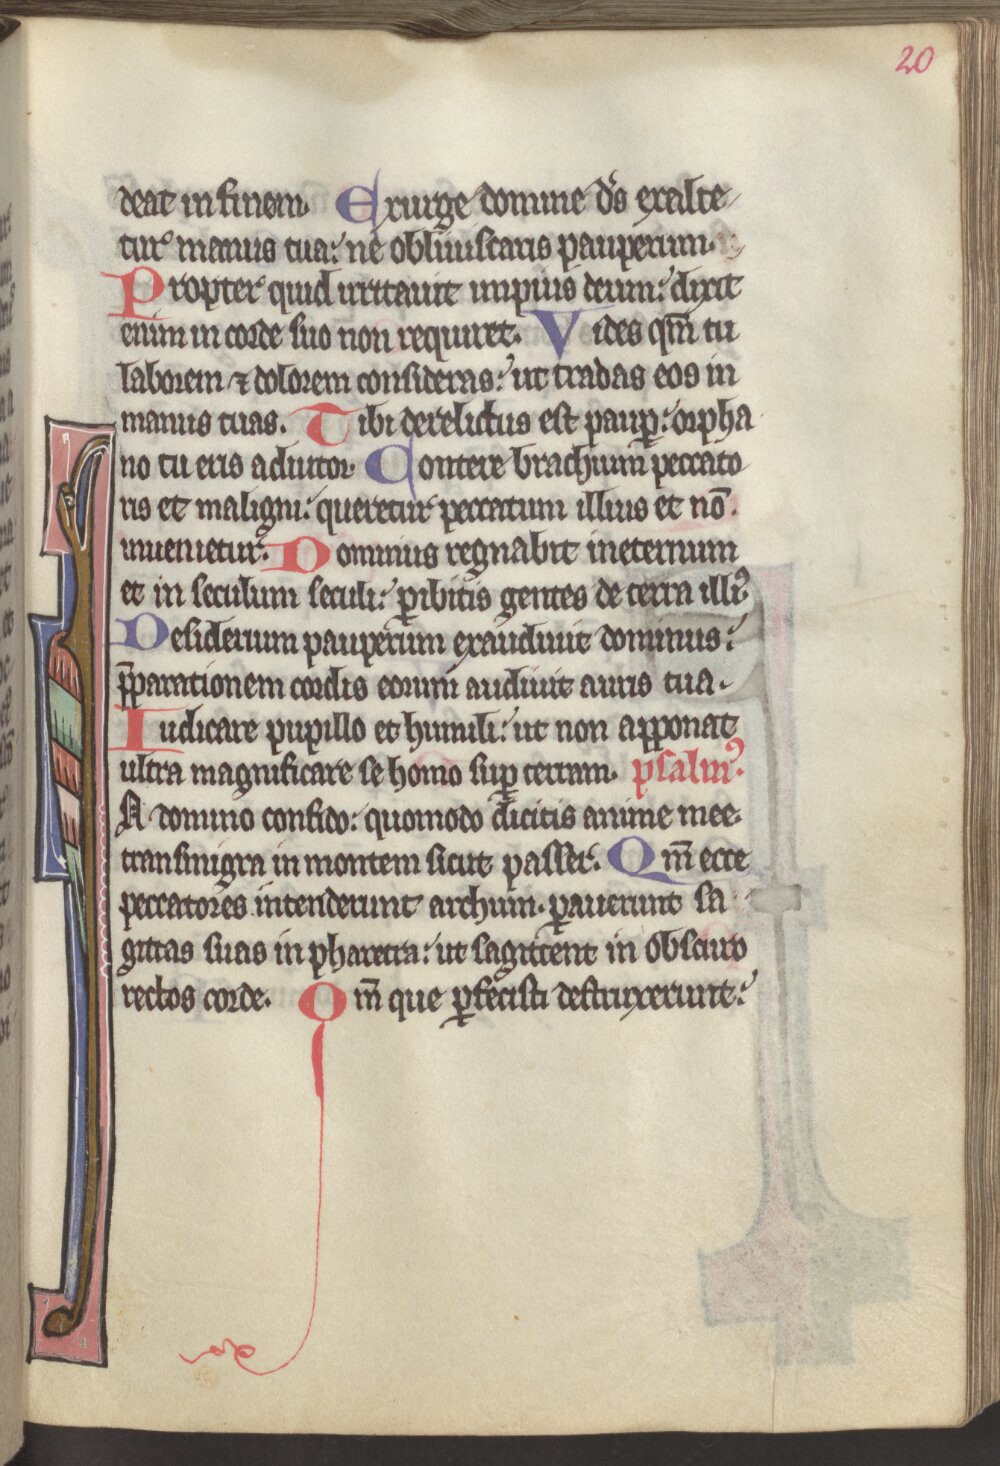 20
deat in finem. Exurge domine ds̄ exalte
tur manus tua: ne obliuiscaris pauperum.
Propter quid irritauit impius deum: dixit
enim in corde suo non requiret. Vides qm̄ tu
laborem ⁊ dolorem consideras: ut tradas eos in
manus tuas. Tibi derelictus est paup̱: orpha
no tu eris adiutor. Contere brachium peccato
ris et maligni: queretur peccatum illius et nō.
inuenietur. Dominus regnabit ineternum
et in seculum seculi: ꝑibitis gentes de terra illiꝰ.
Desiderium pauperum exaudiuit dominus:
p̄parationem cordis eorum audiuit auris tua.
Iudicare pupillo et humili: ut non apponat
ultra magnificare se homo suꝑ terram. psalmꝰ.
N domino confido: quomodo dicitis anime mee.
transmigra in montem sicut passer. Qm̄ ecce
peccatores intenderunt archum. ꝑauerunt sa
gittas suas in pharetra: ut sagittent in obscuro
rectos corde. Qm̄ que ꝑfecisti destruxerunt: